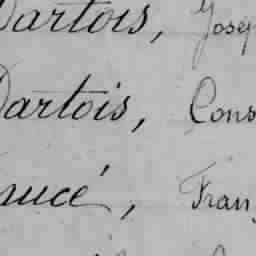 Dartois, Josep
Dartois, Cons
Franç